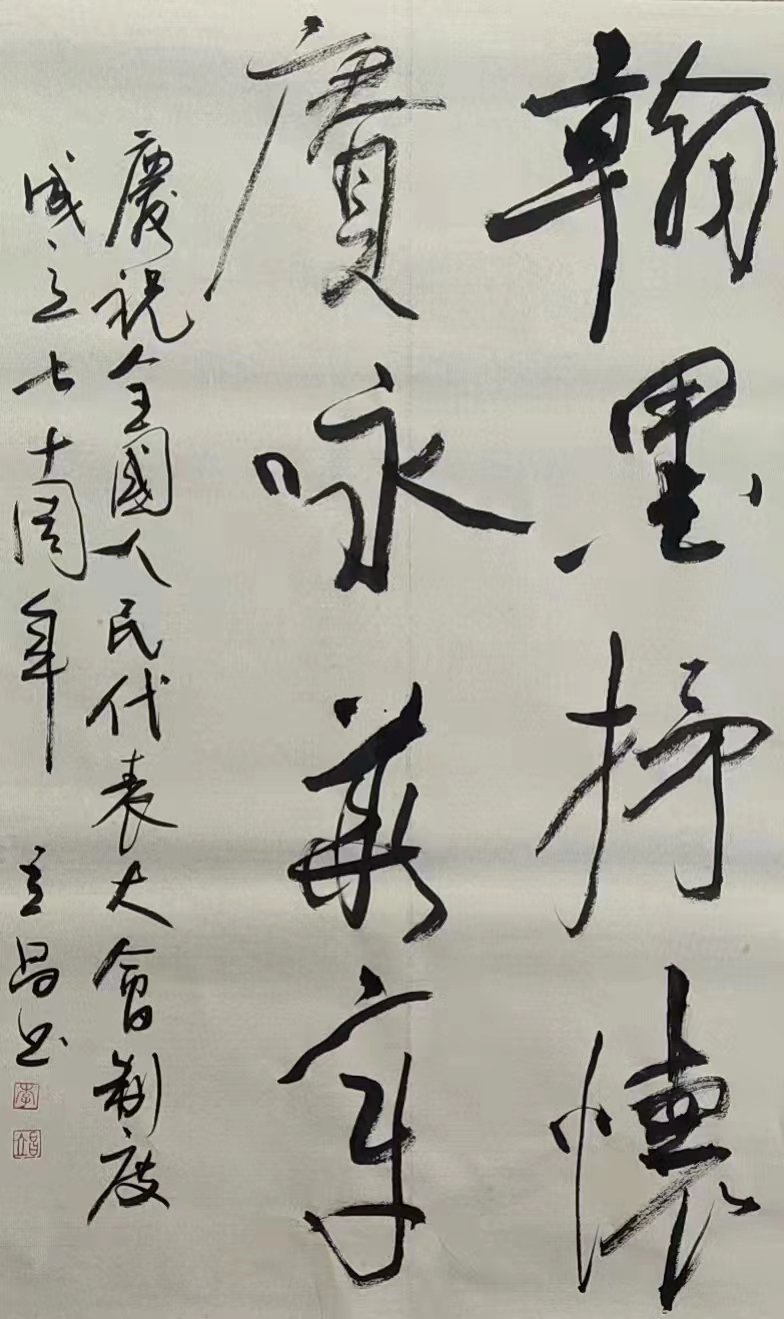 翰墨抒懷
賡咏華章
慶祝全國人民代表大會制度
成立七十周年 立昌书
李
立昌